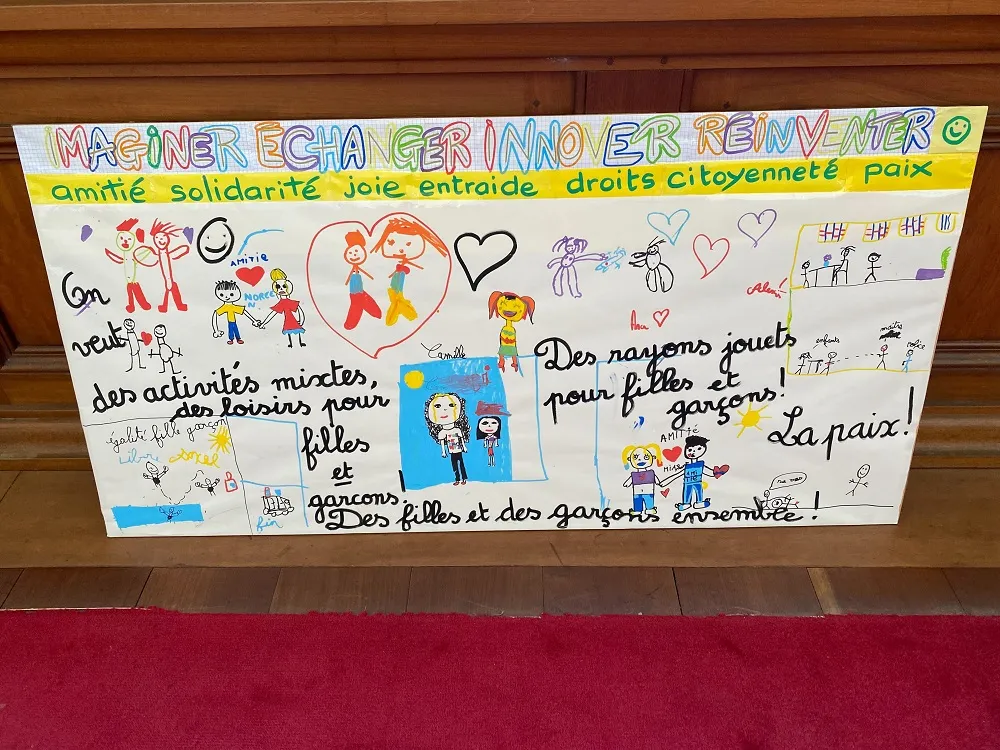 IMAGINER ÉCHANGER INNOVER RÉINVENTER
amitié solidarité joie entraide droits citoyenneté paix
On
veut
AMITIE
des activités mixtes,
des loisirs pour
filles
et
garçons!
égalité fille garçon
fin
Camille
Ana
Des rayons jouets
pour filles et
garçons!
enfants
maître
police
La paix!
AMITIÉ
Des filles et des garçons ensemble!